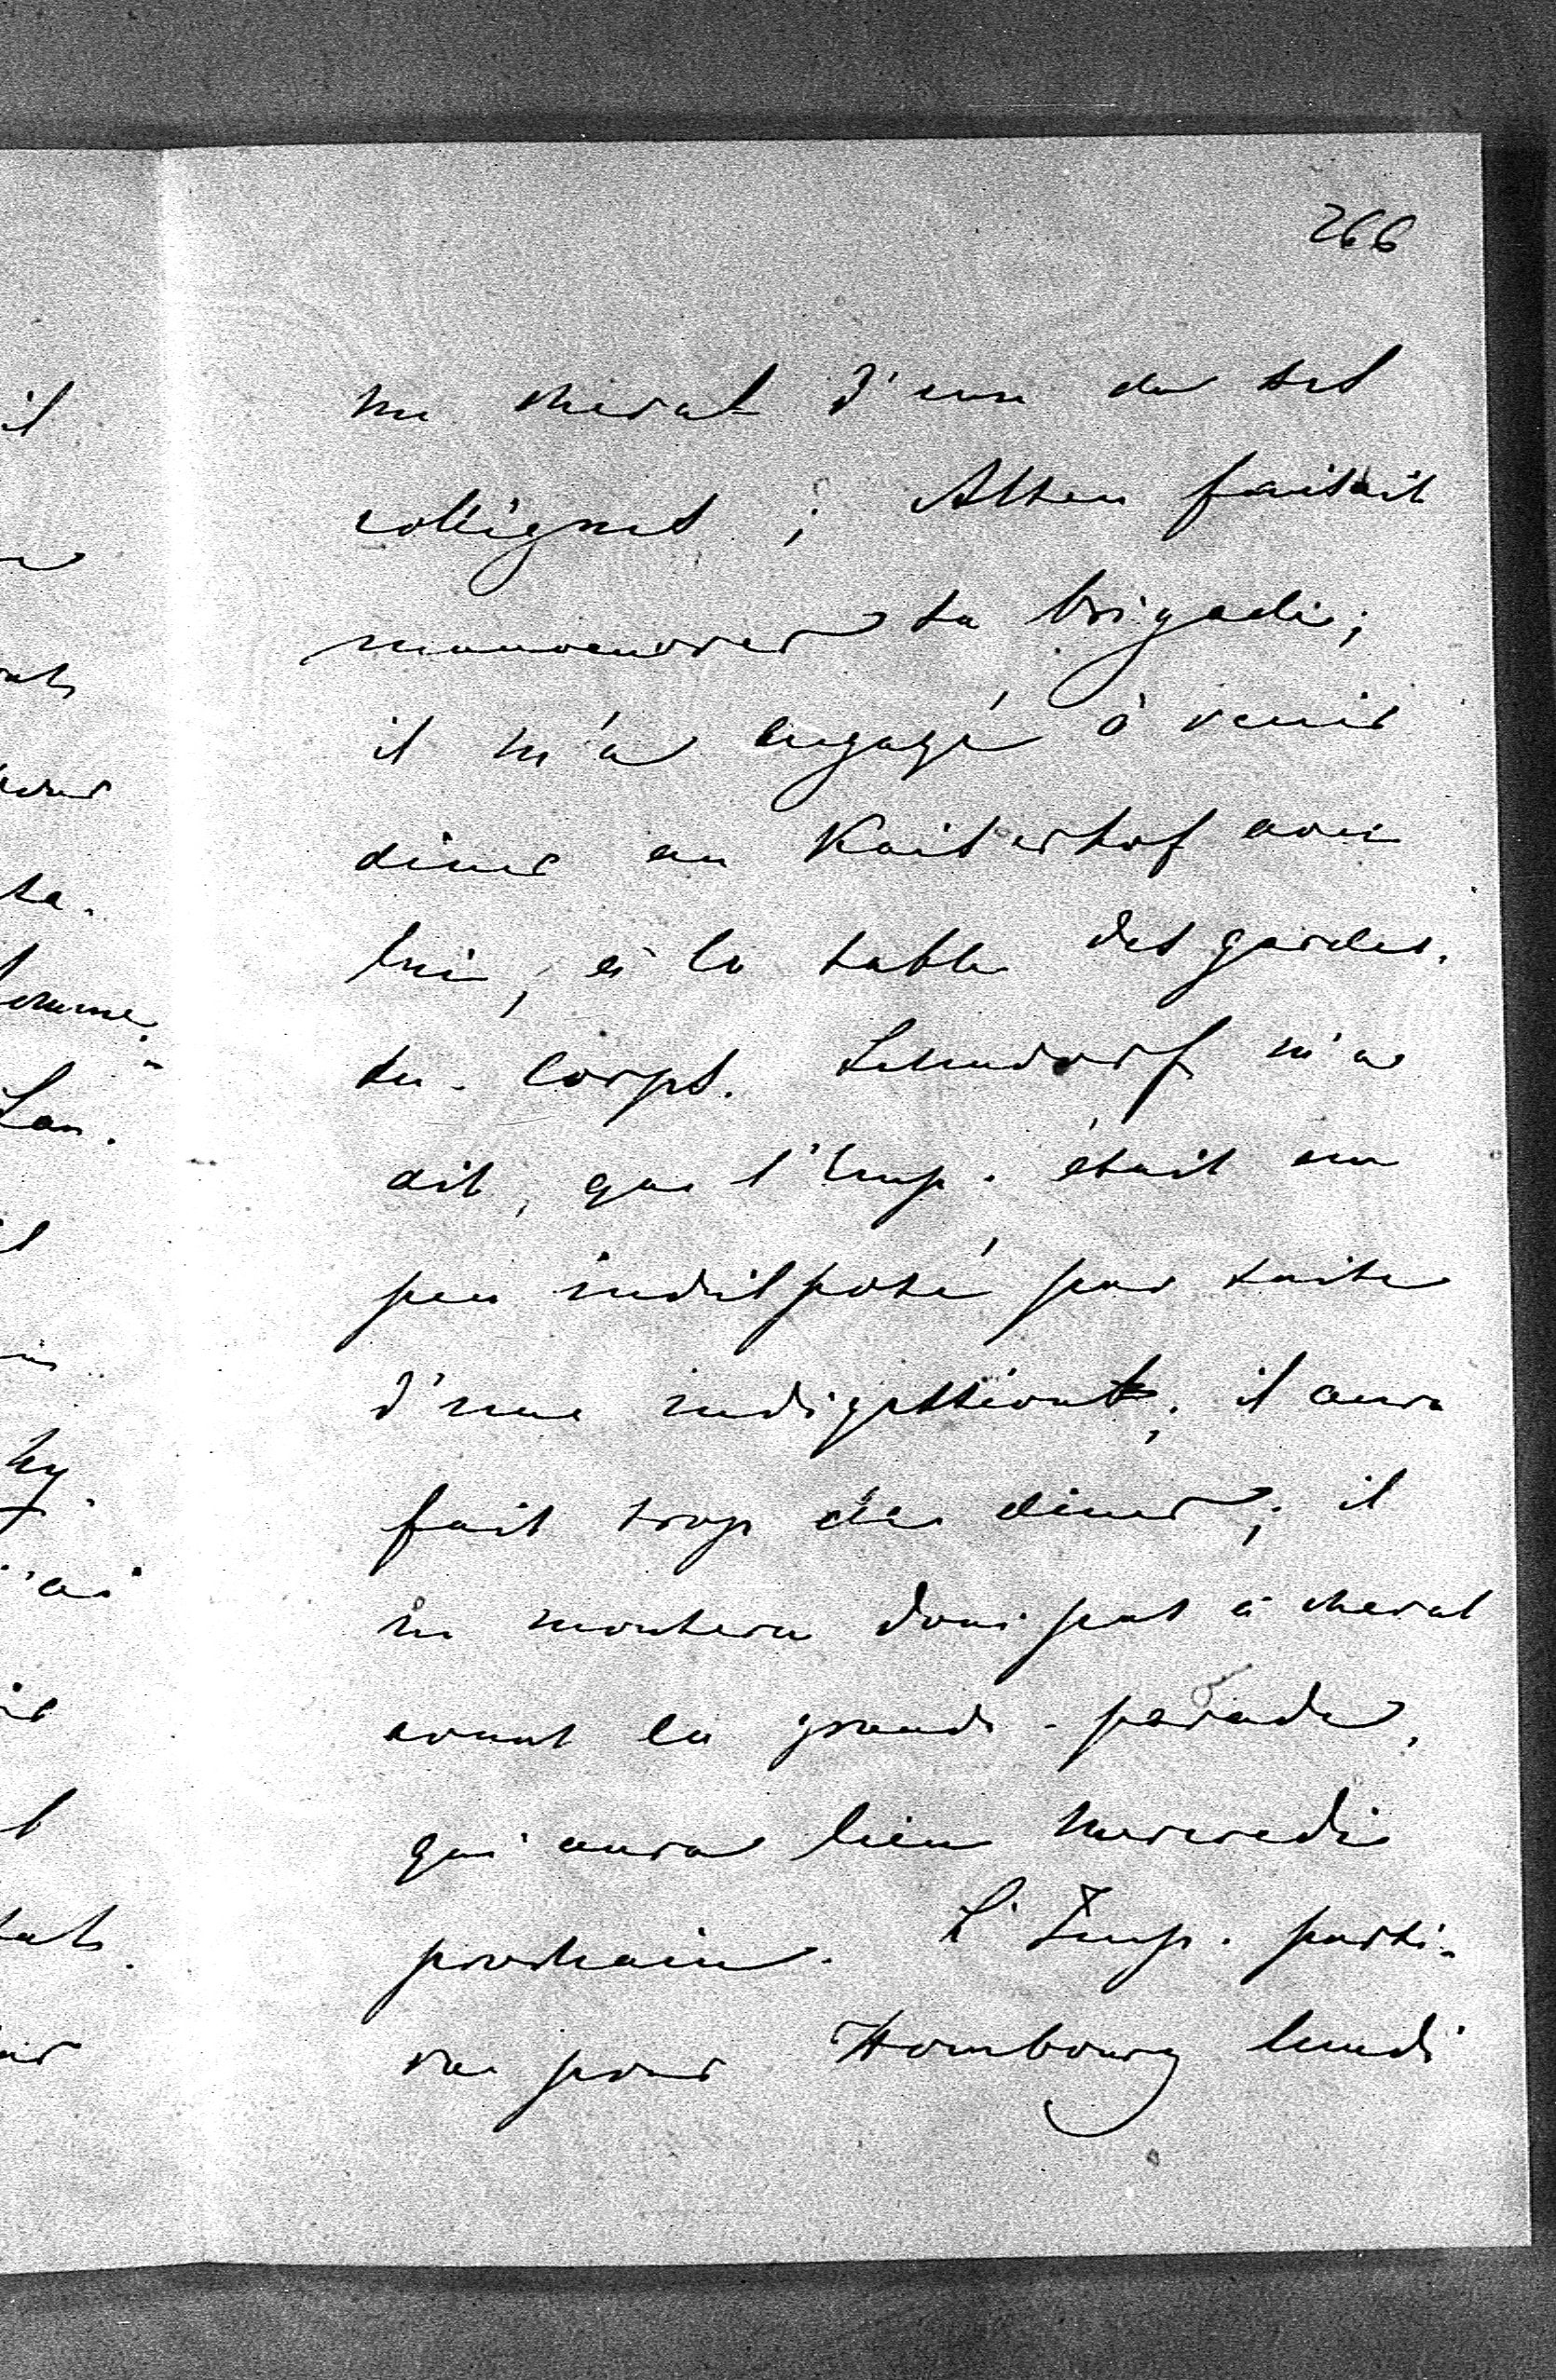 266
un cheval d'un de ses
collègues ; Alten faisait
manoeuvrer sa brigade ;
il m'a engagé à venir
diner au Kaiserhof avec
lui, à la table des gardes.
du - Corps. Lehndorf m'a
dit, que l'Emp. était un
peu indisposé par suite
d'une indigestion ; il aura
fait trop de diner ; il
ne montera donc pas à cheval
avant la grande - parade,
qui aura lieu mercredi
prochain. L'Emp. parti-
ra pour Hombourg lundi